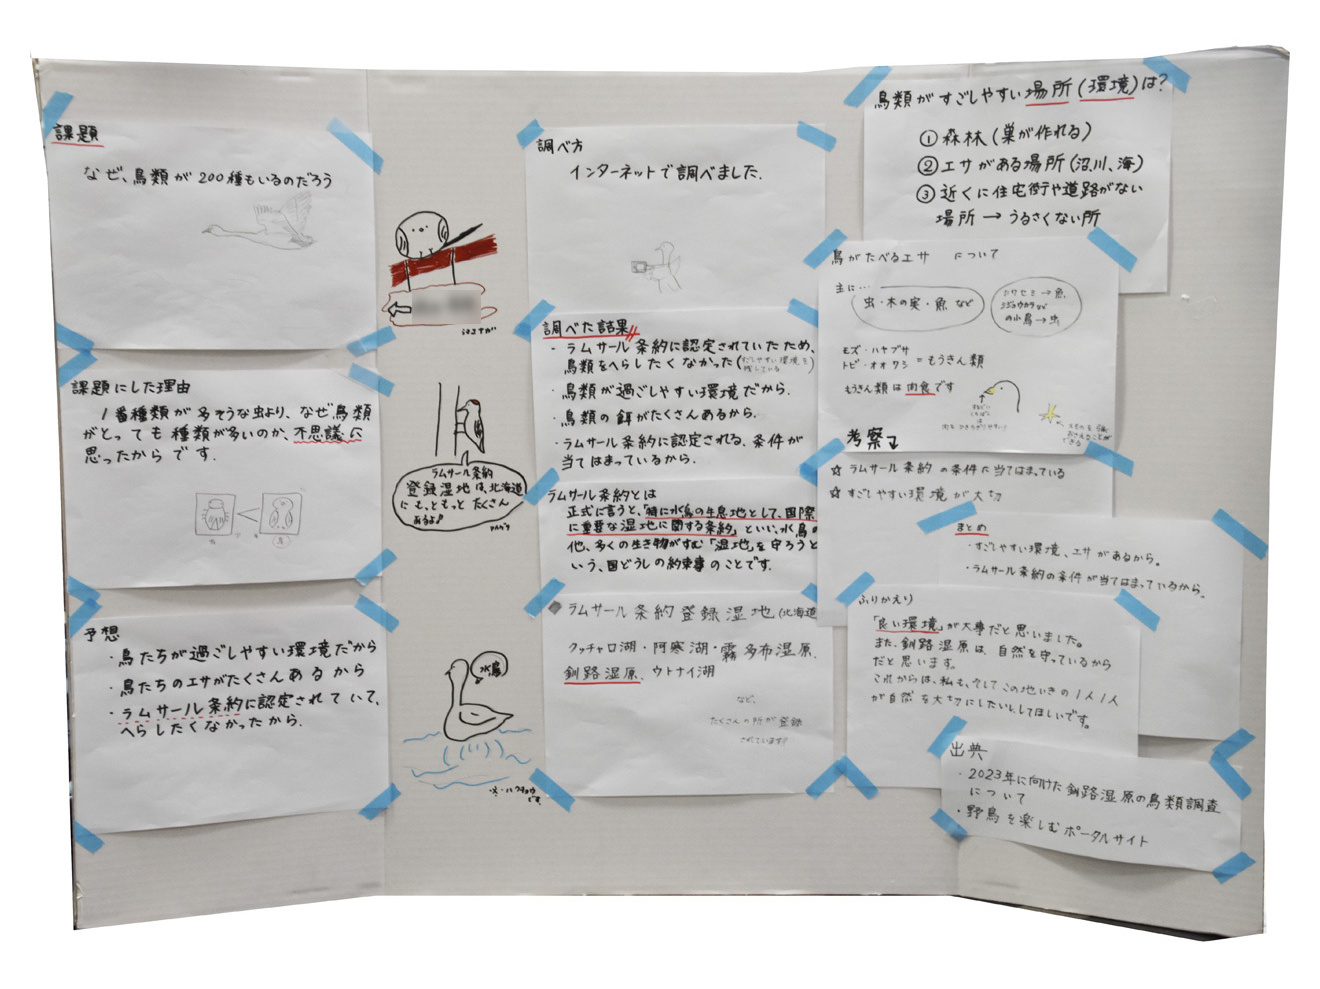 課題
なぜ、鳥類が200種もいるのだろう
課題にした理由
1番種類が多そうな虫より、なぜ鳥類
がとっても種類が多いのか、不思議に
思ったからです.
予想
・鳥たちが過ごしやすい環境だから
・鳥たちのエサがたくさんあるから
・ラムサール条約に認定されていて、
へらしたくなかったから.
シマエナガ
ラムサール条約
登録湿地は、北海道
にも、もっと たくさん
あるよ♪
水鳥
※・ハクチョウ
です。
調べ方
インターネットで調べました.
調べた結果
・ラムサール条約に認定されていたため、
鳥類をへらしたくなかった
・鳥類が過ごしやすい環境だから.
・鳥類の餌がたくさんあるから.
・ラムサール条約に認定される、条件が
当てはまっているから.
ラムサール条約とは
正式に言うと、「特に水鳥の生息地として、国際
に重要な湿地に関する条約」といい、水鳥の
他、多くの生き物がすむ「湿地」を守ろうと
いう、国どうしの約束事のことです.
ラムサール条約登録湿地(北海道
クッチャロ湖・阿寒湖・霧多布湿原、
釧路湿原、ウトナイ湖
など、
たくさんの所が登録
されています!
鳥類がすごしやすい場所(環境)は?
①森林(巣が作れる)
②エサがある場所(沼川、海)
③近くに住宅街や道路がない
場所→うるさくない所
鳥がたべるエサ について
主に…
虫・木の実・魚 など
カワセミ→魚
の小鳥→虫
モズ・ハヤブサ
トビ・オオワシ=もうきん類
もうきん類は肉食です
考察
☆ラムサール条約の条件に当てはまっている
☆すごしやすい環境が大切
まとめ
・すごしやすい環境、エサがあるから。
・ラムサール条約の条件が当てはまっているから。
ふりかえり
「良い環境」が大事だと思いました。
また、釧路湿原は、自然を守っているから
だと思います。
これからは、私も、そしてこの地いきの1人1人
が自然を大切にしたいとしてほしいです。
出典
・2023年に向けた釧路湿原の鳥類調査
について
・野鳥を楽しむポータルサイト